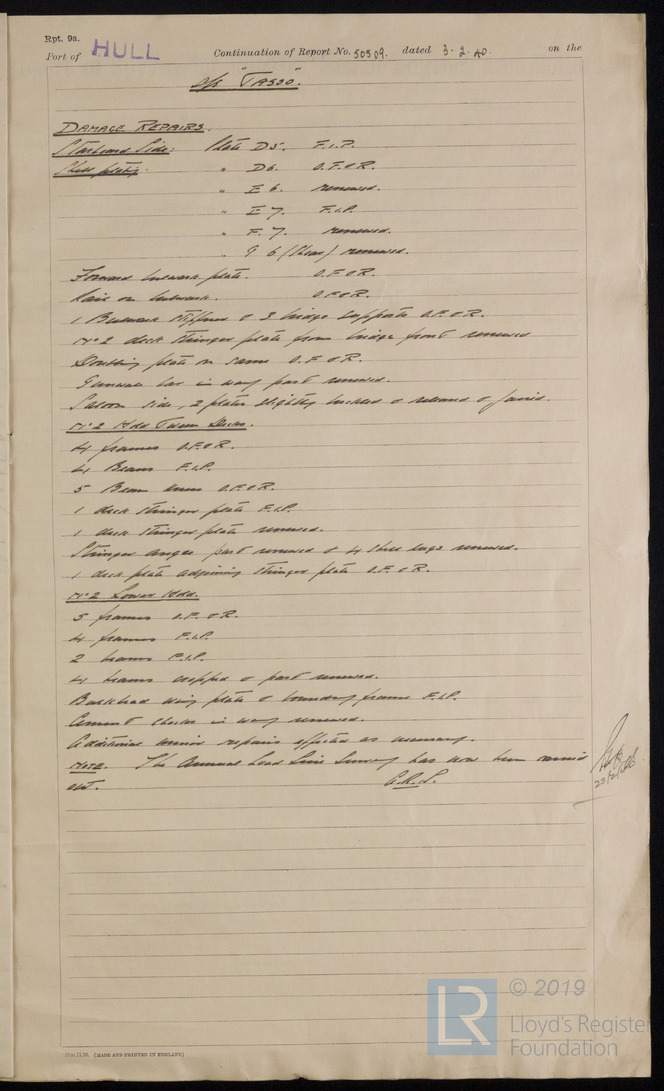 Rpt. 9a.
Port of HULL Continuation of Report No. 50509. dated 3.2.40. on the
S/S "TASSO".
DAMAGE REPAIRS.
Starboard Side: Plate D5. F.I.P.
Shell plating. " D6. O.F.&R.
" E6. renewed.
" E7. F.I.P.
" F.7. renewed.
" G 6 (Shear) renewed.
Forward bulwark plate. O.F.&R.
Rail on bulwark. O.F.&R.
1 Bulwark Stiffener & 3 bridge supports O.F.&R.
No 2 deck Stringer plate from bridge front renewed
Doubling plate on same O.F.&R.
Gunwale bar in way part renewed.
Saloon side, 2 plates slightly buckled & released & faired.
No 2 Hold Tween Decks.
4 frames O.F.&R.
4 Beams F.I.P.
5 Beam knees O.F.&R.
1 deck Stringer plate F.I.P.
1 deck Stringer plate renewed.
Stringer angle part renewed & 4 shell lugs renewed.
1 deck plate adjoining Stringer plate O.F.&R.
No 2 Lower Hold.
5 frames O.F.&R.
4 frames F.I.P.
2 beams F.I.P.
4 beams cropped & part renewed.
Bulkhead wing plate & boundary frame F.I.P.
Cement chocks in way renewed.
Additional minor repairs effected as necessary.
NOTE. The Annual Load Line Survey has now been carried
out.
23/2/40
(MADE AND PRINTED IN ENGLAND)
LR
© 2019
Lloyd's Register
Foundation